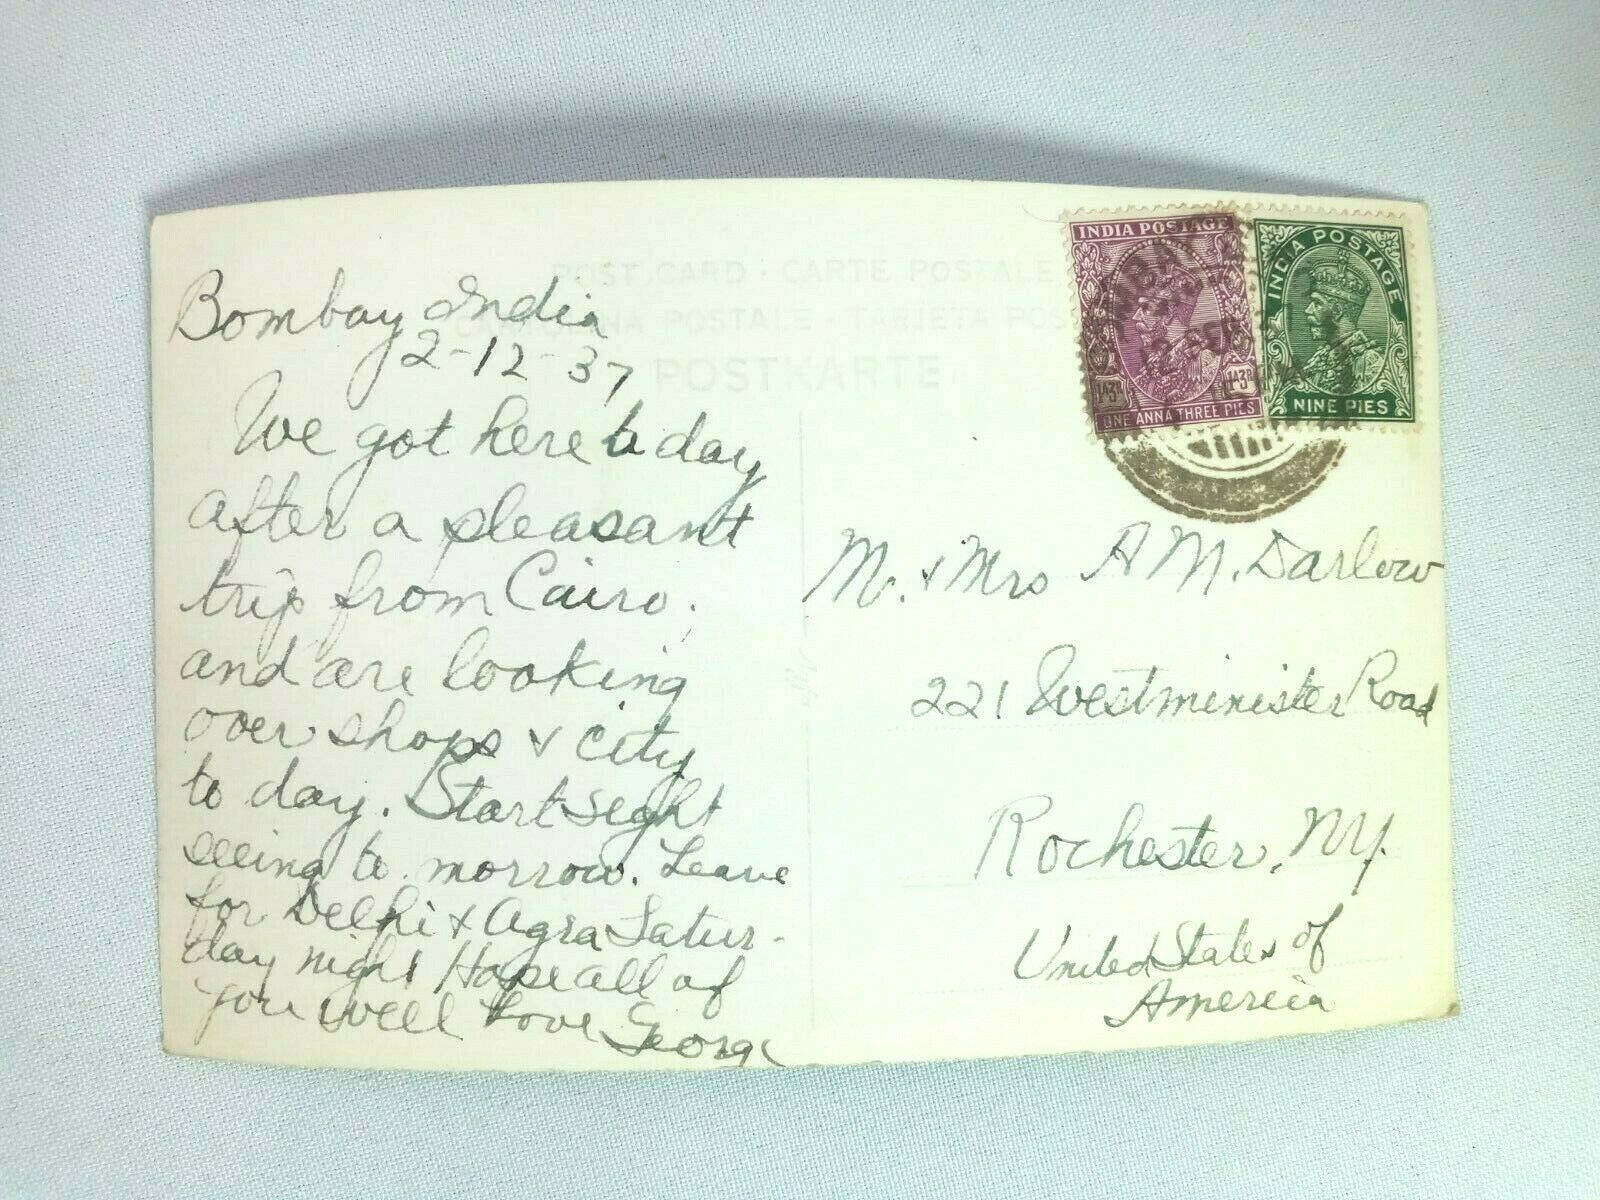 POST CARD · CARTE POSTALE
POSTALE - TARJETA
POSTKARTE
Bombay India
2-12-37
We got here to day
after a pleasant
trip from Cairo.
and are looking
over shops & city
to day. Start sight
seeing to morrow. Leave
for Delhi & Agra Satur-
day night Hope all of
you well Love George
INDIA POSTAGE
1A3P 1A3P
ONE ANNA THREE PIES
INDIA POSTAGE
NINE PIES
12 FEB
Mr. & Mrs A M. Darlow
221 Westminister Road
Rochester, NY.
United States of
America